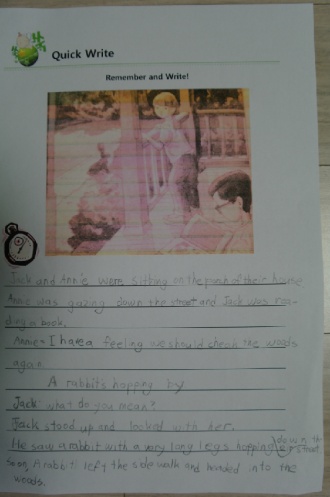 Quick Write
Remember and Write!
Jack and Annie were sitting on the porch of their house
Annie was gazing down the street and Jack was rea-
ding a book.
Annie: I have a feeling we should check the woods
again
A rabbit's hopping by
Jack: what do you mean?
Jack stood up and looked with her.
He saw a rabbit with a very long legs hopping down the street.
Soon, A rabbit left the side walk and headed into the
woods.